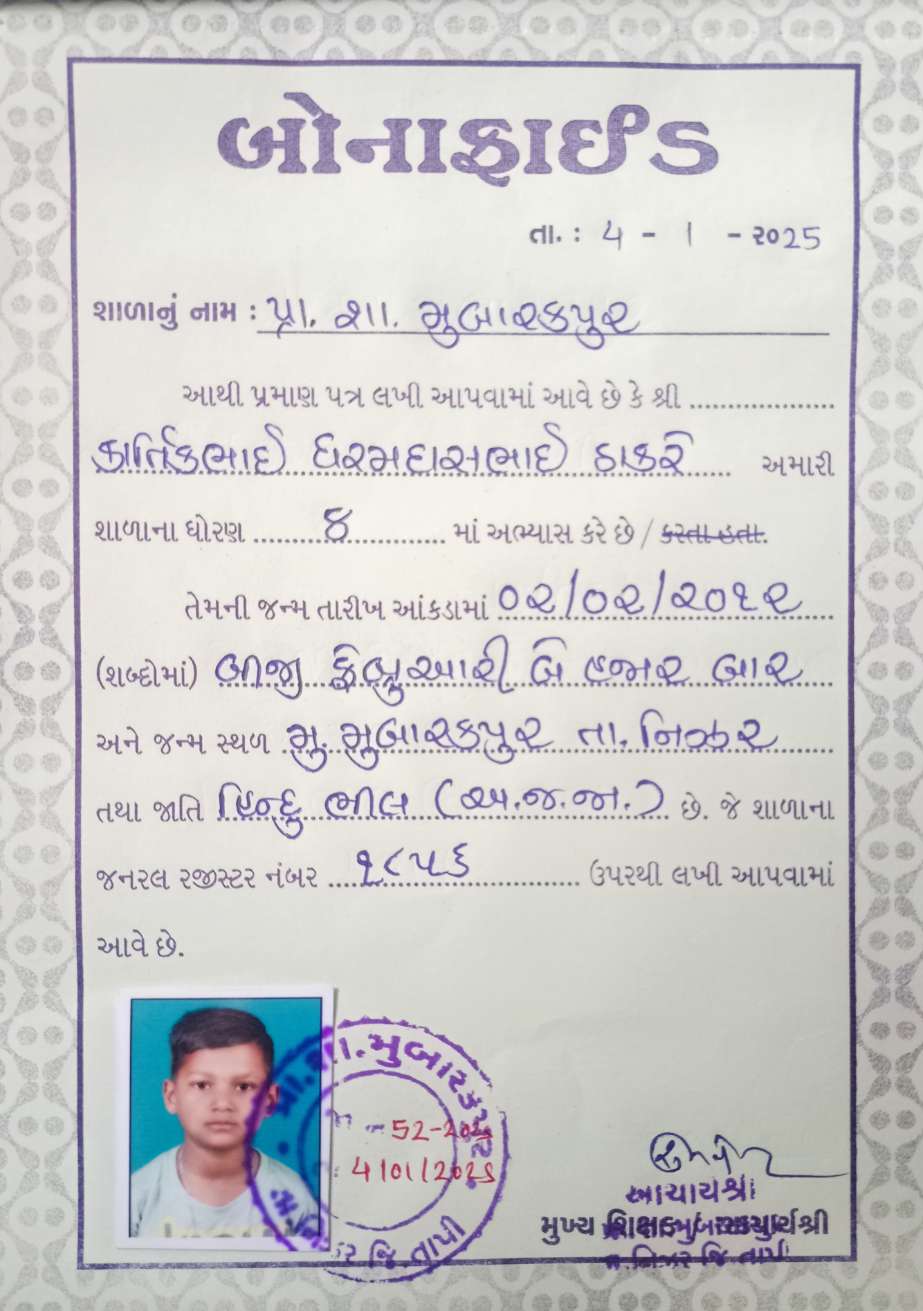 બોનાફાઈડ
તા. : 4 - 1 - ૨૦25
શાળાનું નામ : પ્રા. શા. મુબારકપુર
આથી પ્રમાણ પત્ર લખી આપવામાં આવે છે કે શ્રી ....................
કાર્તિકભાઈ ધરમદાસભાઈ ઠાકરે અમારી
શાળાના ધોરણ ૪ માં અભ્યાસ કરે છે / કરતા હતા.
તેમની જન્મ તારીખ આંકડામાં ૦૨/૦૨/૨૦૧૨
(શબ્દોમાં) બીજી ફેબ્રુઆરી બે હજાર બાર
અને જન્મ સ્થળ મુ. મુબારકપુર તા. નિઝર
તથા જાતિ હિન્દુ ભીલ (અ.જ.જા.) છે. જે શાળાના
જનરલ રજીસ્ટર નંબર ૧૮૫૬ ઉપરથી લખી આપવામાં
આવે છે.
પ્રા.શા.મુબારકપુર
52-
4/01/202
જિ. તાપી
આચાર્યશ્રી
મુખ્ય શિક્ષક / આચાર્યશ્રી
તા.નિઝર જિ.તાપી